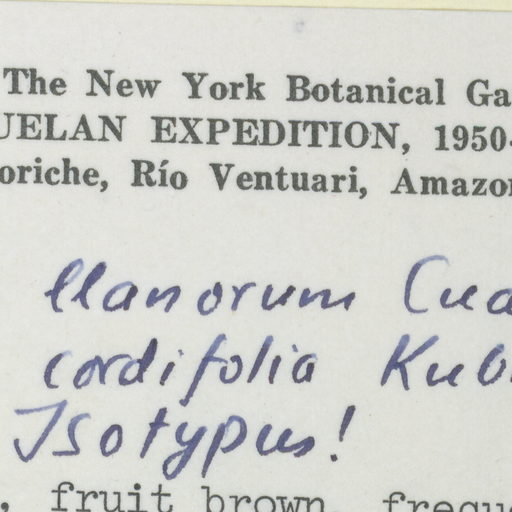 The New York Botanical Ga
UELAN EXPEDITION, 1950-
oriche, Río Ventuari, Amazon
llanorum Cua
cordifolia Kub
Isotypus!
, fruit brown, freque